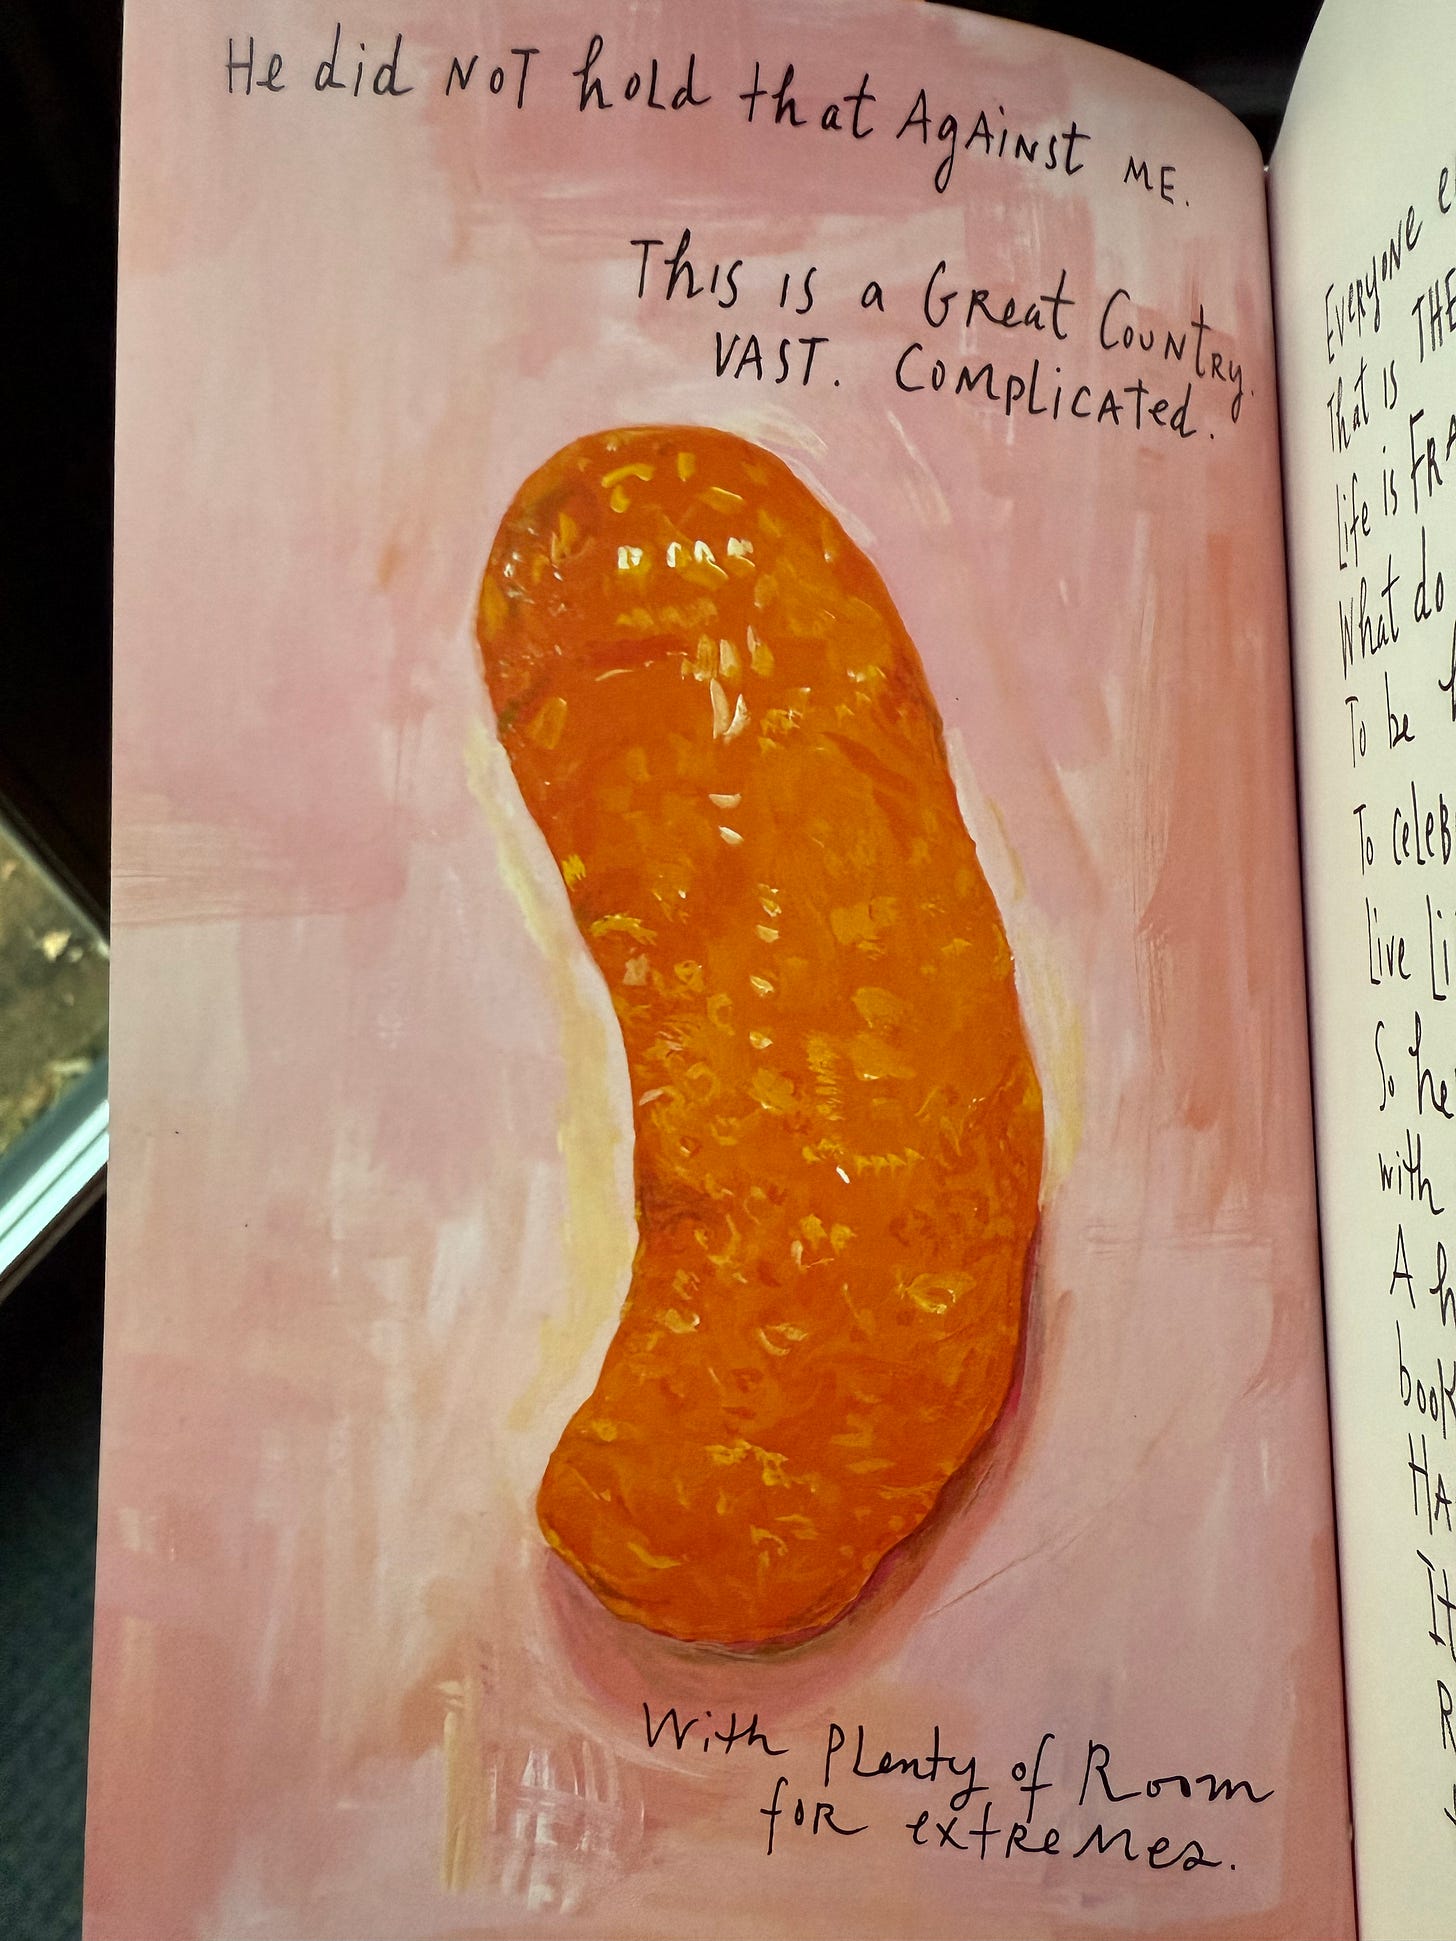 He did NOT hold that AgAiNst ME.
This is a GReat CouNtRy.
VAST. COMplicAted.
With Plenty of Room
foR extReMes.
EveryONe
that is THE
Life is
What do
To be
To celeb
Live Li
So he
with
A h
book
HA
it
R